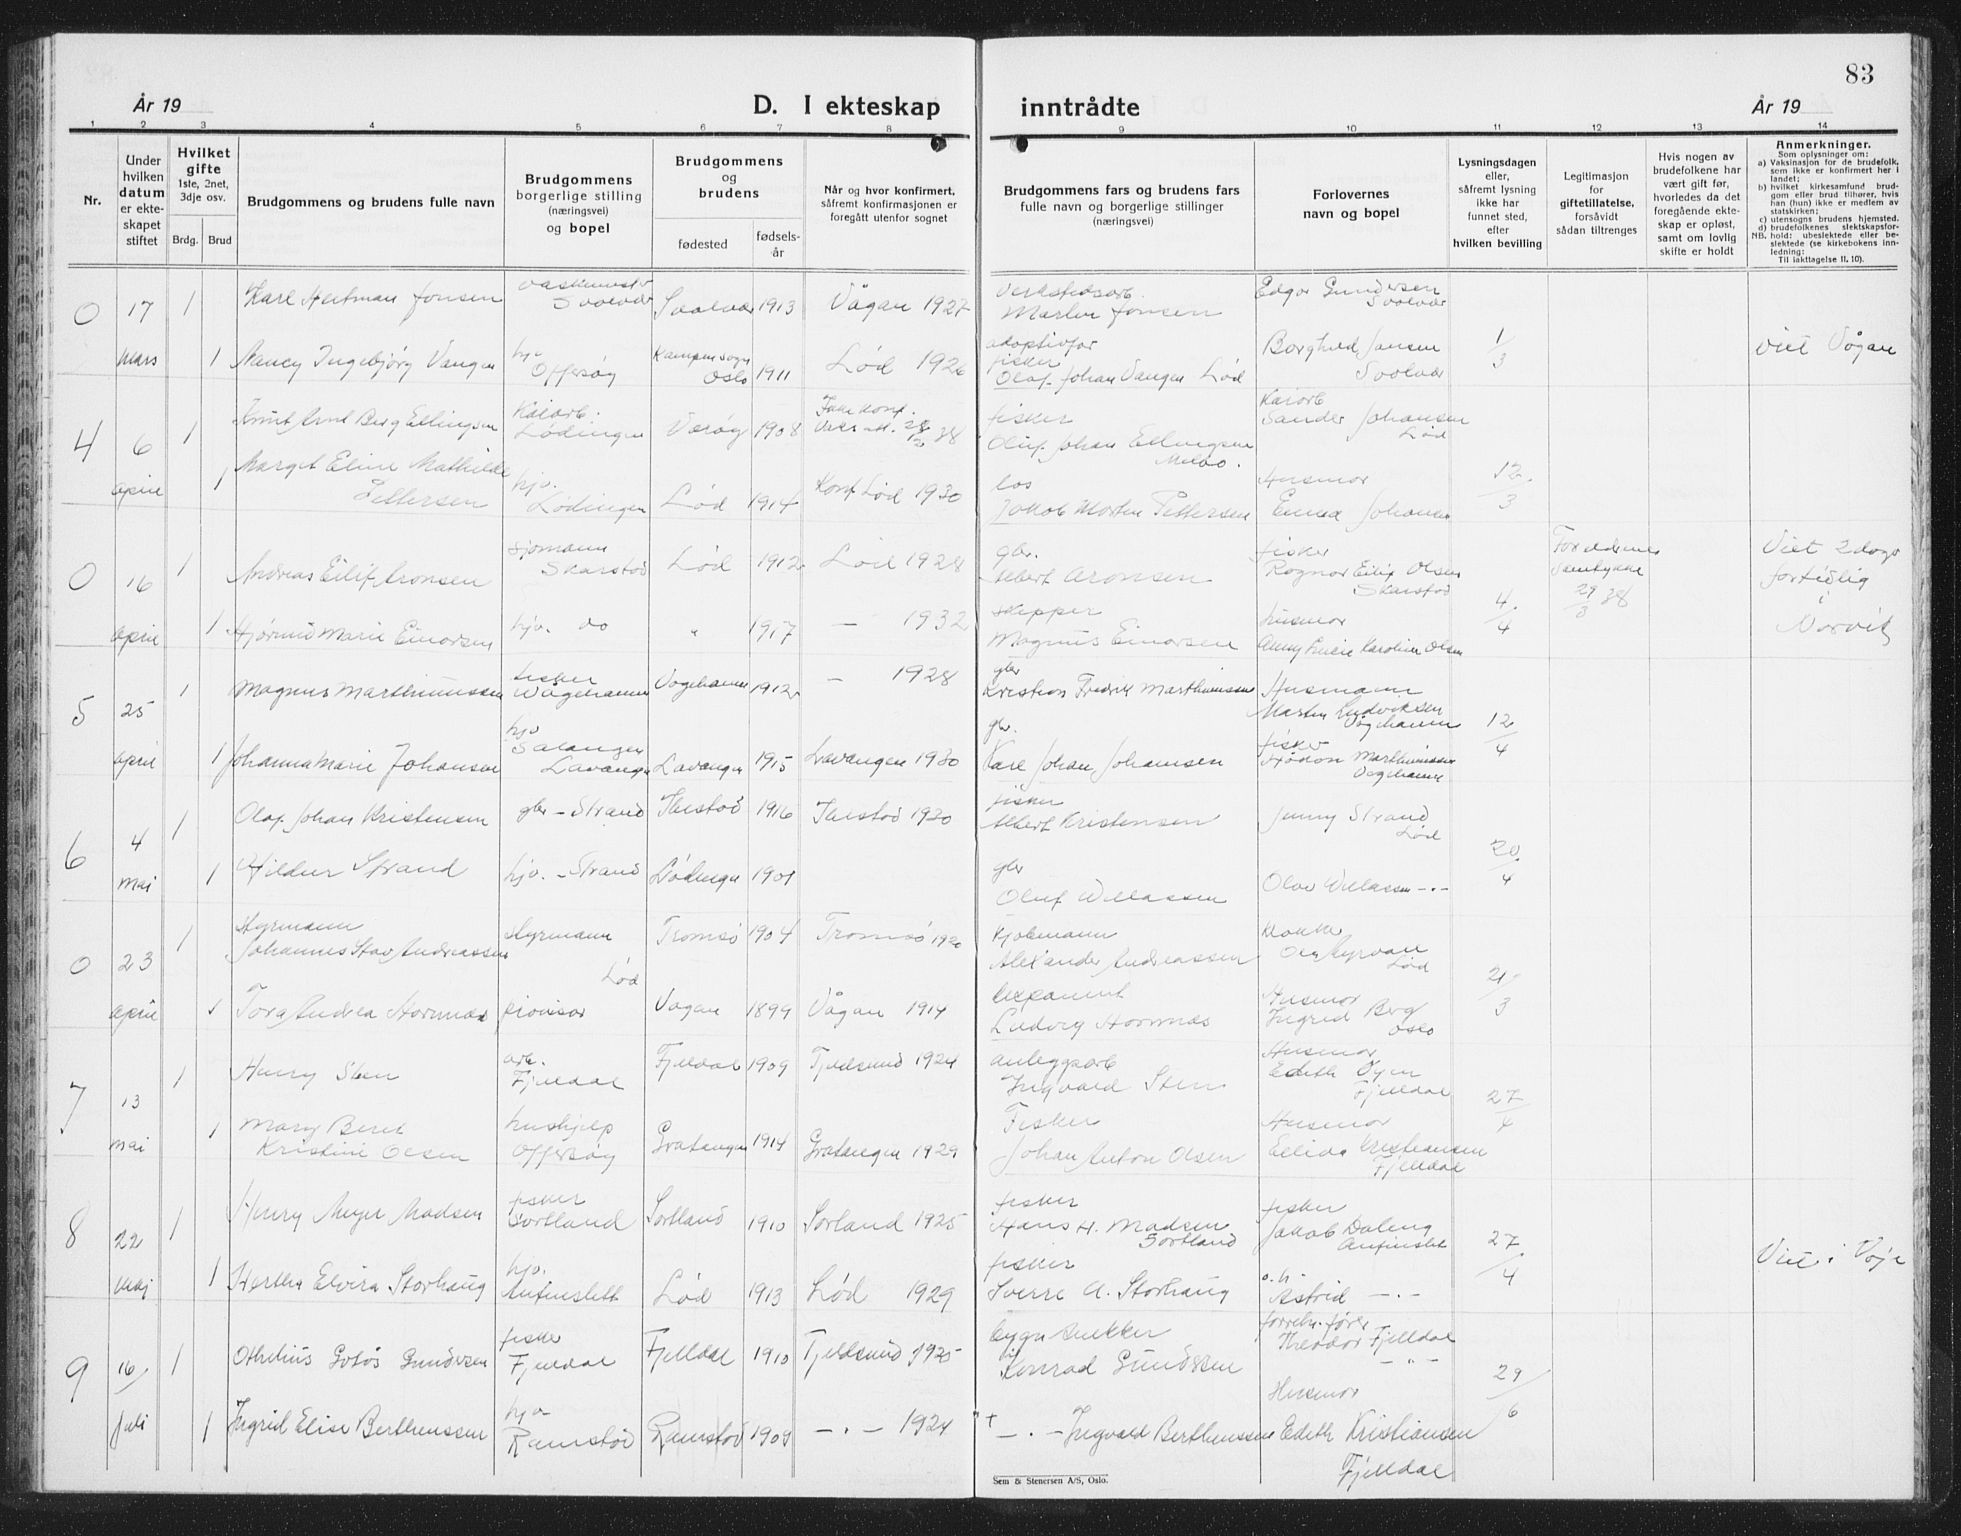 83
År 19
D. I ekteskap inntrådte
År 19
1 2 3 4 5 6 7 8 9 10 11 12 13 14
Nr.
Under hvilken datum er ekteskapet stiftet
Hvilket gifte 1ste, 2net, 3dje osv.
Brdg. Brud
Brudgommens og brudens fulle navn
Brudgommens borgerlige stilling (næringsvei) og bopel
Brudgommens og brudens
fødested
fødsels-år
Når og hvor konfirmert, såfremt konfirmasjonen er foregått utenfor sognet
Brudgommens fars og brudens fars fulle navn og borgerlige stillinger (næringsvei)
Forlovernes navn og bopel
Lysningsdagen eller, såfremt lysning ikke har funnet sted, efter hvilken bevilling
Legitimasjon for giftetillatelse, forsåvidt sådan tiltrenges
Hvis nogen av brudefolkene har vært gift før, hvorledes da det foregående ekteskap er opløst, samt om lovlig skifte er holdt
Anmerkninger.
Som oplysninger om:
a) Vaksinasjon for de brudefolk, som ikke er konfirmert her i landet;
b) hvilket kirkesamfund brudgom eller brud tilhører, hvis han (hun) ikke er medlem av statskirken;
c) utensogns brudens hjemsted.
d) brudefolkenes slektskapsforhold: ubeslektede eller beslektede (se kirkebokens innledning:
NB. Til iakttagelse II. 10).
0 17 mars 1 Karl Hertman Jonsen Svolvær Svolvær 1913 Vågan 1927 Verkstedsarb. Martin Jonsen Edgar Gundersen Svolvær
1 Nancy Ingebjørg Vangen hjv Offersøy Kampen sogn Oslo 1911 Lød 1926 adoptivfar fisker Olaf Johan Vangen Lød Borghild Jansen Svolvær 1/3 Viet Vågan
4 6 april 1 Knut Arnt Berg Ellingsen Kaiarb. Lødingen Værøy 1908 Ikke konf. fisker Oluf Johan Ellingsen Melbo. Kaiarb Sander Johansen Lød
1 Margit Eline Mathilde Pettersen hjv. Lødingen Lød 1914 Konf Lød 1930 los Jakob Morten Pettersen Husmor Emma Johansen 12/3
0 16 april 1 Andreas Eilif Aronsen sjømann Skarstad Lød 1912 Lød 1928 gbr. Albert Aronsen fisker Ragnar Eilif Olsen Skarstad Foreldrenes samtykke 29/3 38 Viet 2 dager fortidlig i Narvik
1 Hjørund Marie Einarsen hjv. do " 1917 — 1932 skipper Magnus Einarsen husmor Anny Lucie Karoline Olsen 4/4
5 25 april 1 Magnus Marthinussen fisker Vågehamn Vågehamn 1912 — 1928 gbr Kristian Fredrik Marthinussen Husmann Martin Ludviksen Vågehamn
1 Johanna Marie Johansen hjv Salangen Lavangen Lavangen 1915 Lavangen 1930 gbr. Karl Johan Johansen fisker Marthinussen Vågehamn 12/4
6 4 mai 1 Olaf Johan Kristensen gbr – Strand Ibestad 1916 Ibestad 1930 fisker Albert Kristensen Jenny Strand Lød
1 Hildur Strand hjv. – Strand Lødingen 1901 gbr Oluf Willassen Olav Willassen –"– 20/4
0 23 april 1 Styrmann Johannes Stav Andreassen styrmann Lød Tromsø 1904 Tromsø 1920 Kjøbmann Alexander Andreassen Ole Myrvan Lød
1 Tora Andrea Hornnæs provisor Vågan 1899 Vågan 1914 Ludvig Hornnæs Husmor Ingrid Berg Oslo 21/3
7 13 mai 1 Henry Sten arb. Fjelldal Fjelldal 1909 Tjeldsund 1924 anleggsarb Ingvald Sten Husmor Edith Øyen Fjelldal
1 Mary Beret Kristine Olsen hushjelp Offersøy Gratangen 1914 Gratangen 1929 Fisker Johan Anton Olsen Husmor Ellida Kristiansen Fjelldal 27/4
8 22 maj 1 Henry Meyer Madsen fisker Sortland Sortland 1910 Sorland 1925 fisker Hans H. Madsen Sortland fisker Jakob Daling Anfinslet
1 Hertha Elvira Storhaug hjv. Anfinslett Lød 1913 Lød 1929 fisker Sverre A. Storhaug Astrid –"– 27/4 Viet i
9 16/ juli 1 Othelius Gotås Gundersen fisker Fjelldal Fjelldal 1910 Tjeldsund 1925 Konrad Gundersen forretn.fører Theodor Fjelldal –"–
1 Ingrid Elise Berthenssen hjv Ramstad Ramstad 1909 –"– 1924 + –"– Ingvald Berthenssen Husmor Edith Kristiansen Fjelldal 29/6
Sem & Stenersen A/S, Oslo.